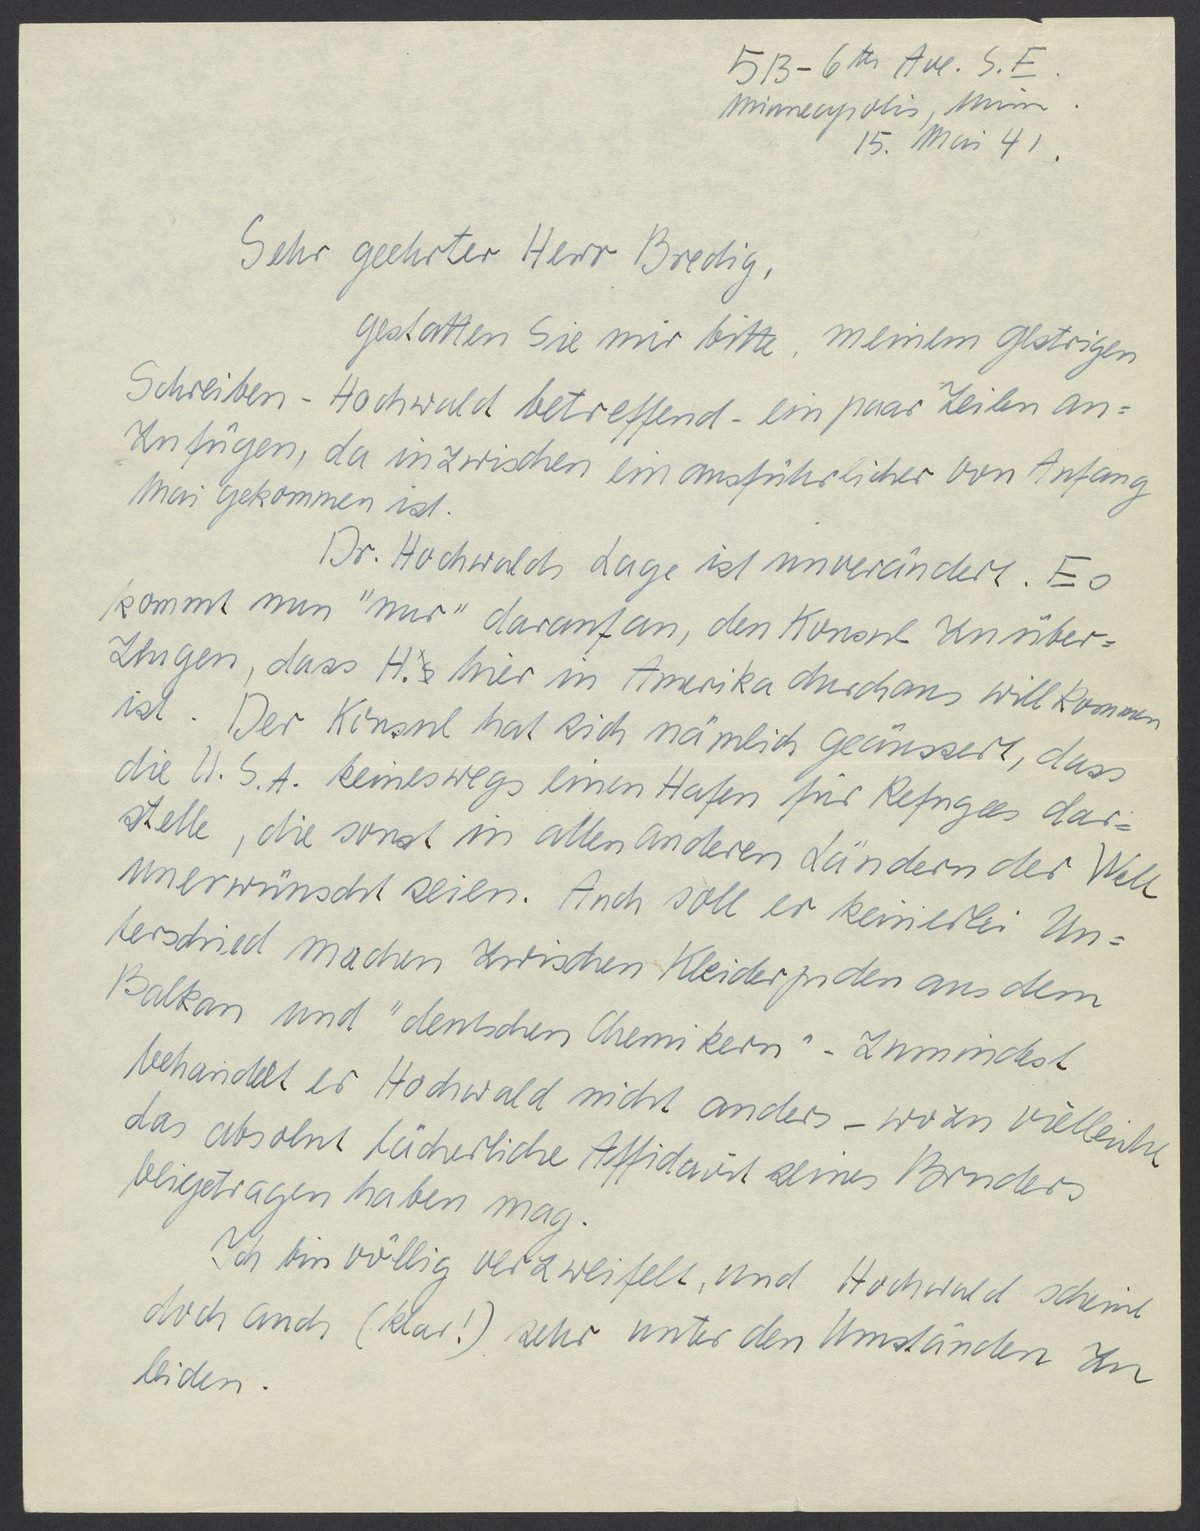 513 - 6th Ave. S.E.
Minneapolis, Minn.
15. Mai 41.
Sehr geehrter Herr Bredig,
gestatten Sie mir bitte, meinem gestrigen
Schreiben - Hochwald betreffend - ein paar Zeilen an=
zufügen, da inzwischen ein ausführlicher von Anfang
Mai gekommen ist.
Dr. Hochwalds Lage ist unverändert. Es
kommt nun "nur" darauf an, den Konsul zu über=
zeugen, dass H. hier in Amerika durchaus willkommen
ist. Der Konsul hat sich nämlich geäussert, dass
die U.S.A. keineswegs einen Hafen für Refugees dar=
stelle, die sonst in allen anderen Ländern der Welt
unerwünscht seien. Auch soll er keinerlei Un=
terschied machen zwischen Kleiderjuden aus dem
Balkan und "deutschen Chemikern" - zumindest
behandelt er Hochwald nicht anders - wozu vielleicht
das absolut lächerliche Affidavit seines Bruders
beigetragen haben mag.
Ich bin völlig verzweifelt, und Hochwald scheint
doch auch (klar!) sehr unter den Umständen zu
leiden.